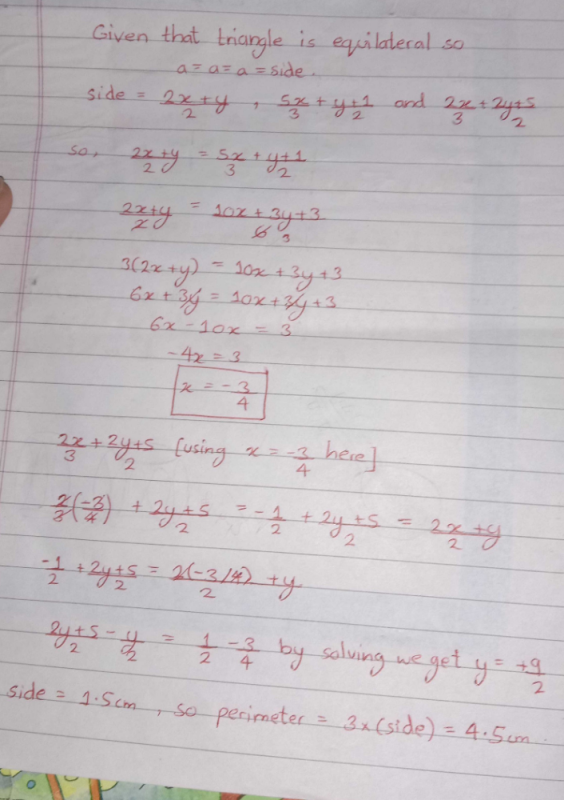 Given that triangle is equilateral so
a = a = a = side.
side = (2x+y)/2 , 5x/3 + (y+1)/2 and 2x/3 + (2y+5)/2
so, (2x+y)/2 = 5x/3 + (y+1)/2
(2x+y)/2 = (10x+3y+3)/6 3
3(2x+y) = 10x+3y+3
6x+3y = 10x+3y+3
6x-10x = 3
-4x = 3
x = -3/4
2x/3 + (2y+5)/2 [using x = -3/4 here]
2/3(-3/4) + (2y+5)/2 = -1/2 + (2y+5)/2 = (2x+y)/2
-1/2 + (2y+5)/2 = (2(-3/4)+y)/2
(2y+5)/2 - y/2 = 1/2 - 3/4 by solving we get y = +9/2
side = 1.5cm , so perimeter = 3x(side) = 4.5cm.